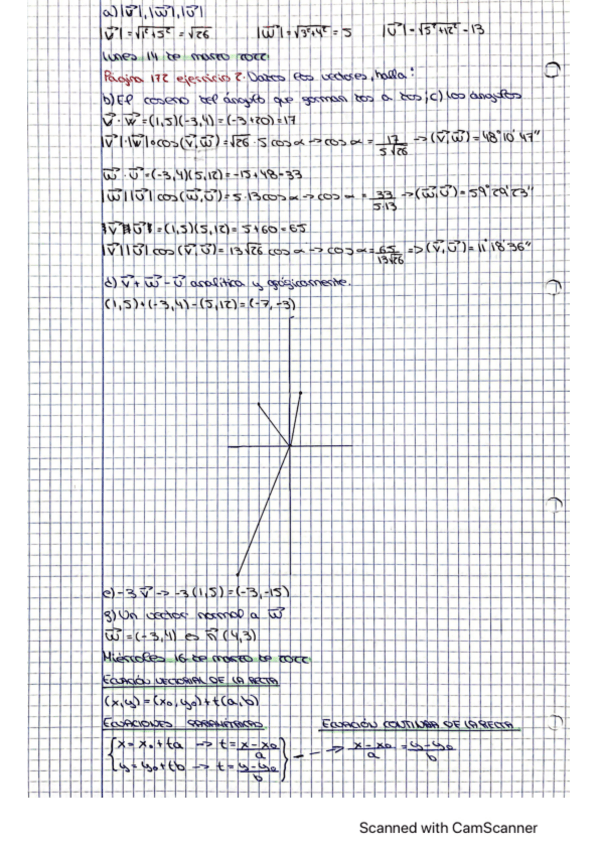 a) |v⃗|, |w⃗|, |u⃗|
|v⃗| = √1²+5² = √26 |w⃗| = √3²+4² = 5 |u⃗| = √5²+12² = 13
Lunes 14 de marzo 2022.
Página 172 ejercicio 2. Dados los vectores, halla:
b) El coseno del ángulo que forman dos a dos; c) los ángulos
v⃗ · w⃗ = (1,5)(-3,4) = (-3+20) = 17
|v⃗|·|w⃗|·cos(v⃗,w⃗) = √26 · 5 cos α → cos α = 17/5√26 → (v⃗,w⃗) = 48°10'47"
w⃗ · u⃗ = (-3,4)(5,12) = -15+48=33
|w⃗||u⃗| cos(w⃗,u⃗) = 5·13 cos α → cos α = 33/5·13 → (w⃗,u⃗) = 59°29'23"
|v⃗||u⃗| = (1,5)(5,12) = 5+60=65
|v⃗||u⃗| cos(v⃗,u⃗) = 13√26 cos α → cos α = 65/13√26 => (v⃗,u⃗) = 11°18'36"
d) v⃗ + w⃗ - u⃗ analítica y gráficamente.
(1,5)+(-3,4)-(5,12)=(-7,-3)
e) -3v⃗ → -3(1,5)=(-3,-15)
g) Un vector normal a w⃗
w⃗ = (-3,4) es n⃗ (4,3)
Miércoles 16 de marzo de 2022.
ECUACIÓN VECTORIAL DE LA RECTA
(x,y)=(x₀,y₀)+t(a,b)
ECUACIONES PARAMÉTRICAS ECUACIÓN CONTINUA DE LA RECTA
{x = x₀+ta → t = x-x₀/a} --→ x-x₀/a = y-y₀/b
{y = y₀+tb → t = y-y₀/b}
Scanned with CamScanner